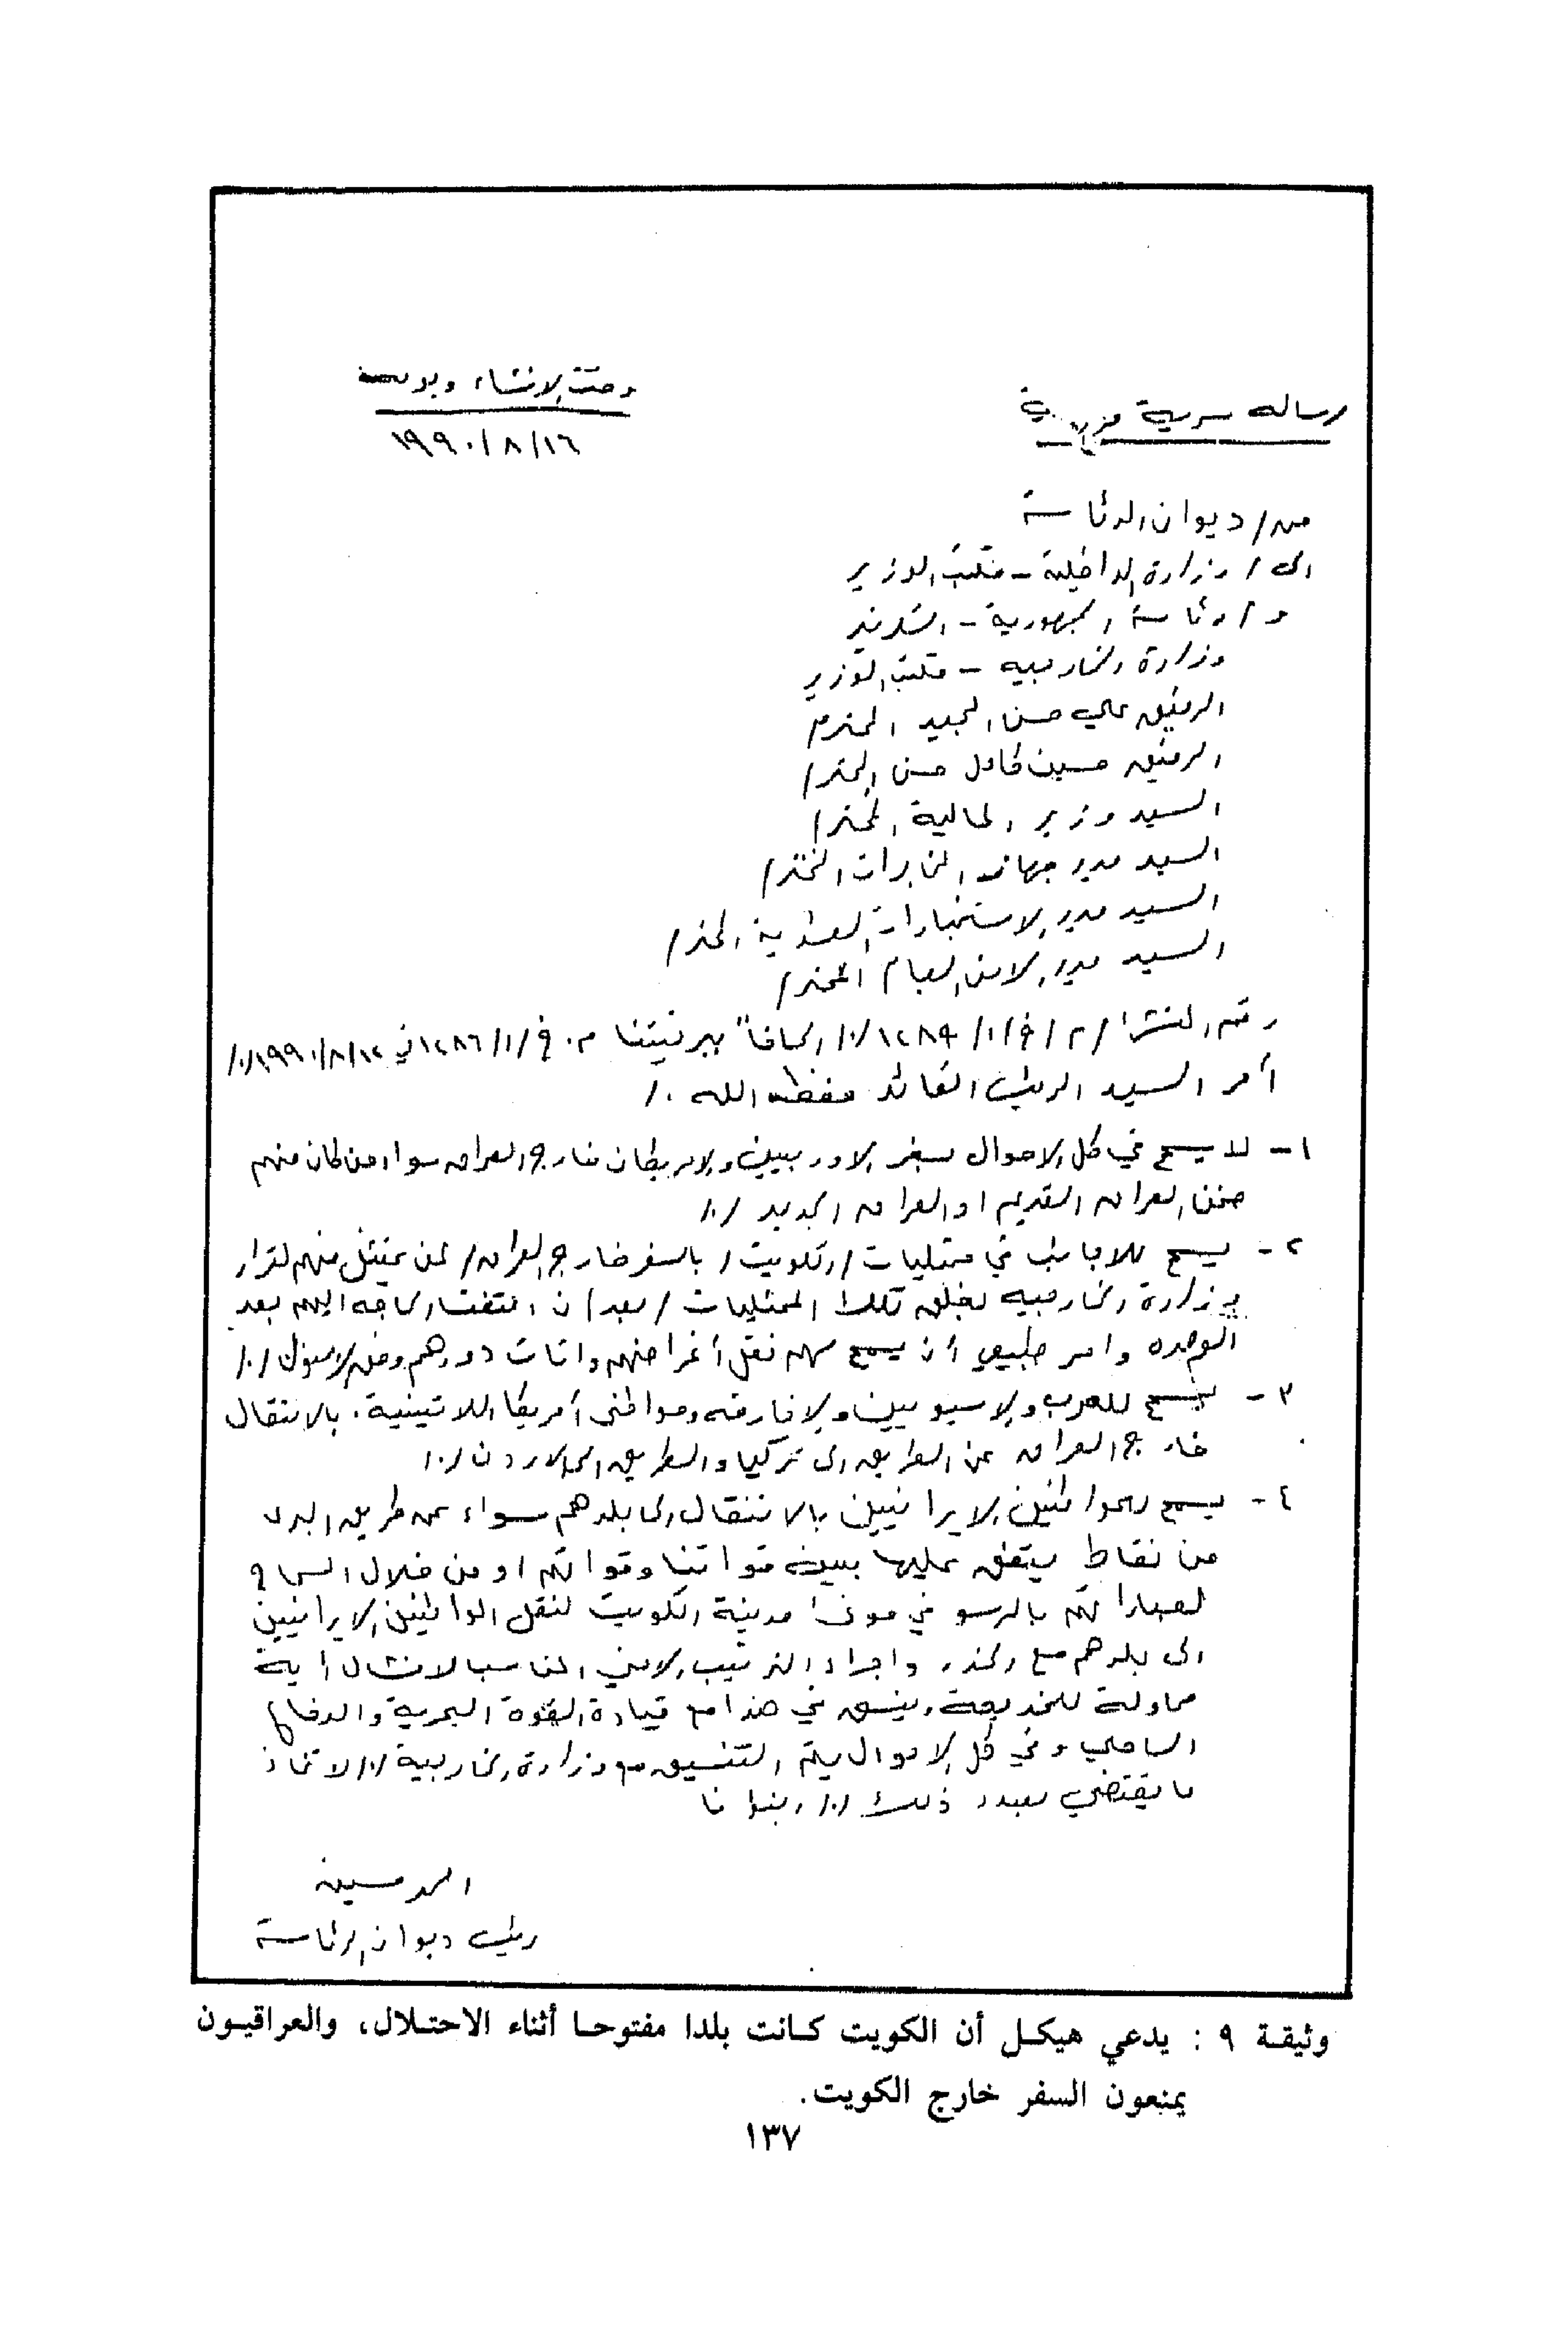 رساله سرية
وقت الانشاء وبدرجة
١٦/٨/١٩٩٠
من/ ديوان الرئاسة
الى/ وزارة الداخلية - مكتب الوزير
و/ رئاسة الجمهورية - السكرتير
وزارة الخارجيه - مكتب الوزير
الرفيق علي حسن المجيد المحترم
الرفيق حسين كامل حسن المحترم
السيد وزير المالية المحترم
السيد مدير جهاز المخابرات المحترم
السيد مدير الاستخبارات العسكرية المحترم
السيد مدير الامن العام المحترم
رقم المنشأ /٢/ق/١/١٢٨٩/٠/ الحاقاً ببرقيتنا م.ق/١/١٢٨٦ في ١٢/٨/١٩٩٠/٠/
أمر السيد الرئيس القائد حفظه الله ./
١- لا يسمح في كل الاحوال بسفر الاوربيين والامريكان خارج العراق سواء من كان منهم
ضمن العراق القديم او العراق الجديد /./
٢- يسمح للاجانب في ممثليات /الكويت/ بالسفر خارج العراق/ لمن يمتثل منهم لقرار
وزارة الخارجيه بغلق تلك الممثليات /بعد ان انتفت الحاجه اليهم بعد
الوحده وامر طبيعي أن يسمح لهم نقل أغراضهم واثاث دورهم وفق الاصول /./
٣- يسمح للعرب والاسيويين والافارقه ومواطني أمريكا اللاتينية. بالانتقال
خارج العراق عن الطريق الى تركيا والطريق الى الاردن /./
٤- يسمح للمواطنين الايرانيين بالانتقال الى بلدهم سواء عن طريق البر
من نقاط يتفق عليها بين قواتنا وقواتهم او من خلال السماح
لعباراتهم بالرسو في موانئ مدينة الكويت لنقل المواطنين الايرانيين
الى بلدهم مع الحذر واجراء الترتيب الامني المناسب لافشال اية
محاولة للخديعة وينسق في هذا مع قيادة القوة البحرية والدفاع
الساحلي وفي كل الاحوال يتم التنسيق مع وزارة الخارجية /./ لاتخاذ
ما يقتضي بصدد ذلك /./ انبؤنا
احمد حسين
رئيس ديوان الرئاسة
وثيقة ٩ : يدعي هيكل أن الكويت كانت بلدا مفتوحا أثناء الاحتلال، والعراقيون
يمنعون السفر خارج الكويت.
١٣٧